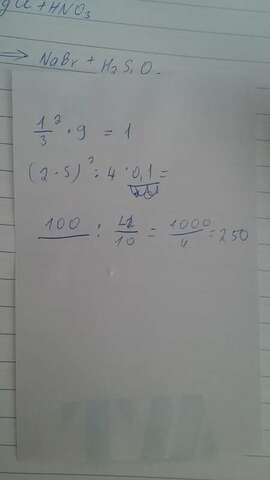 + HNO₃
⟹ NaBr + H₂SiO
1/3² · 9 = 1
(2 · 5)² : 4 · 0,1 =
100 : 4/10 = 1000/4 = 250